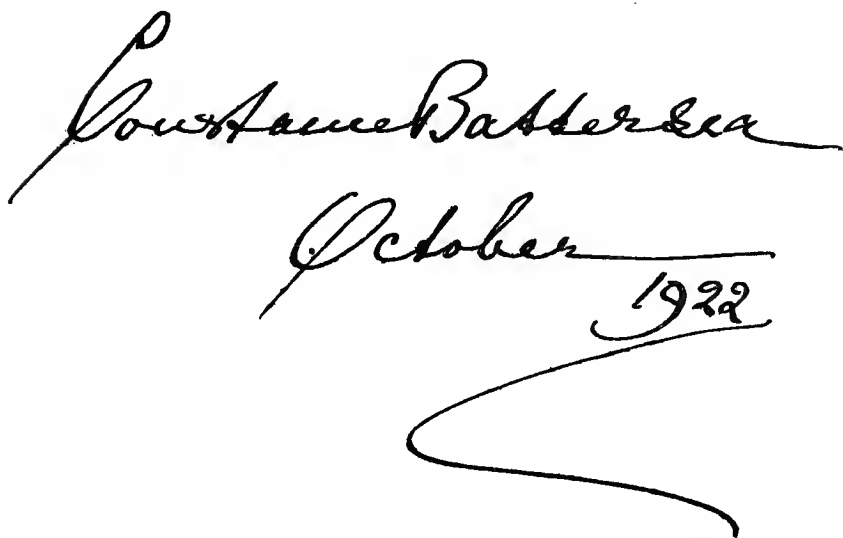 Constance Battersea
October
1922